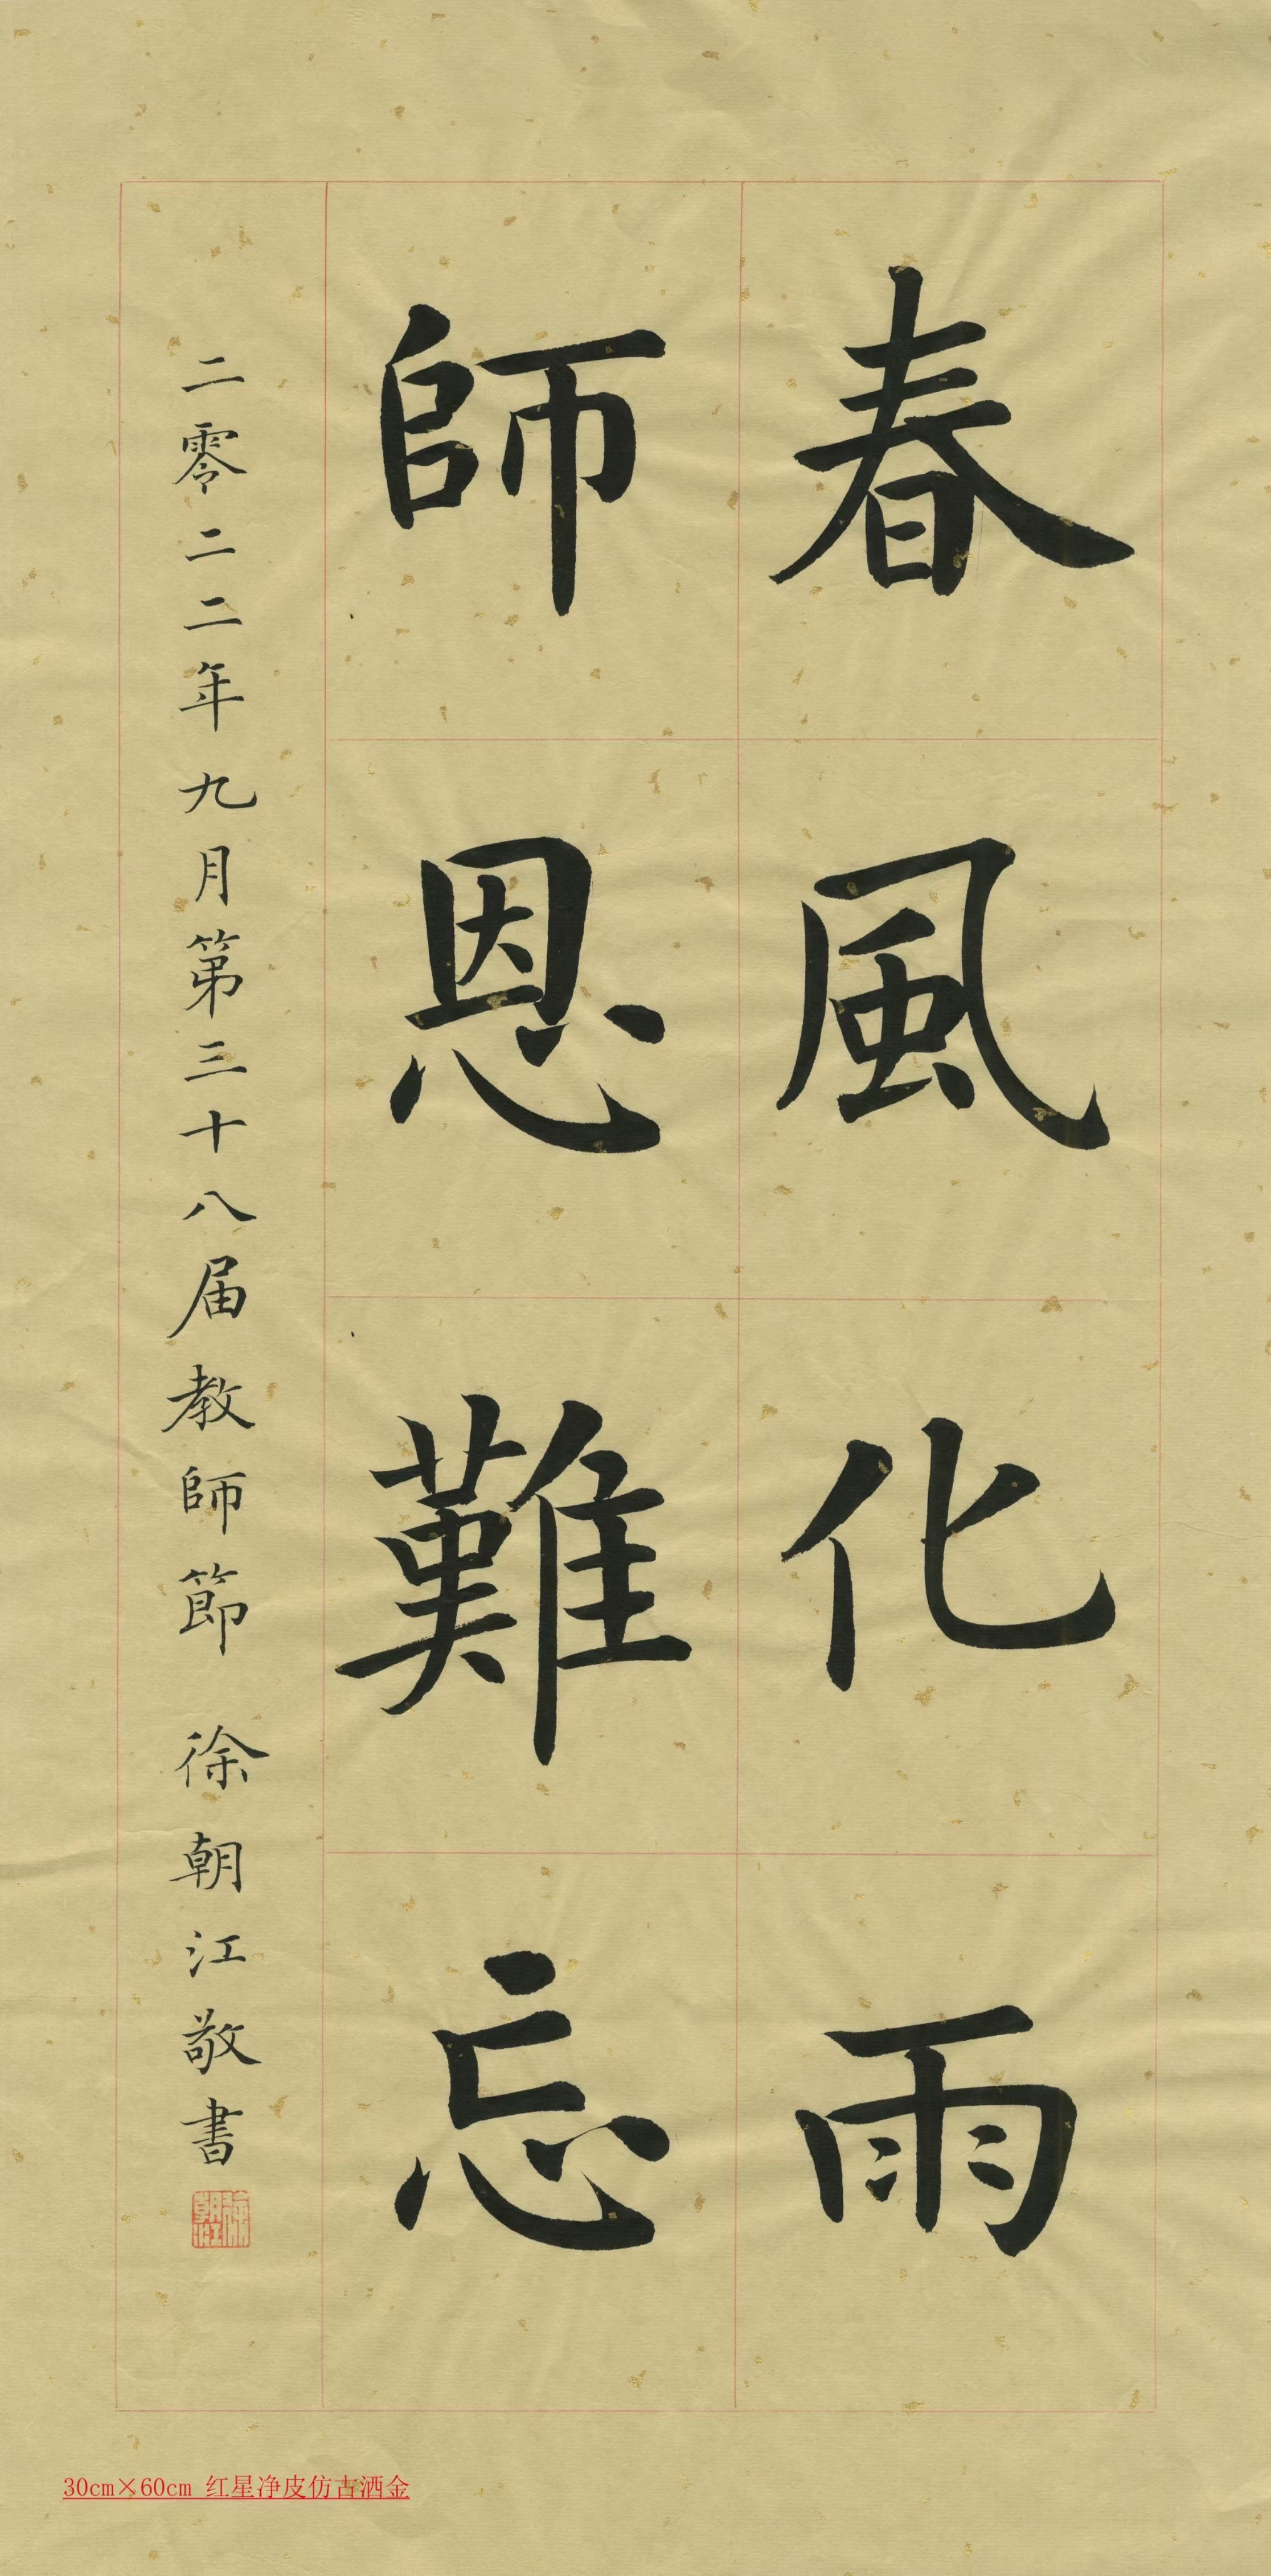 春風化雨
師恩難忘
二零二二年九月第三十八届教師節 徐朝江敬書
徐朝江
30cm×60cm 红星净皮仿古洒金